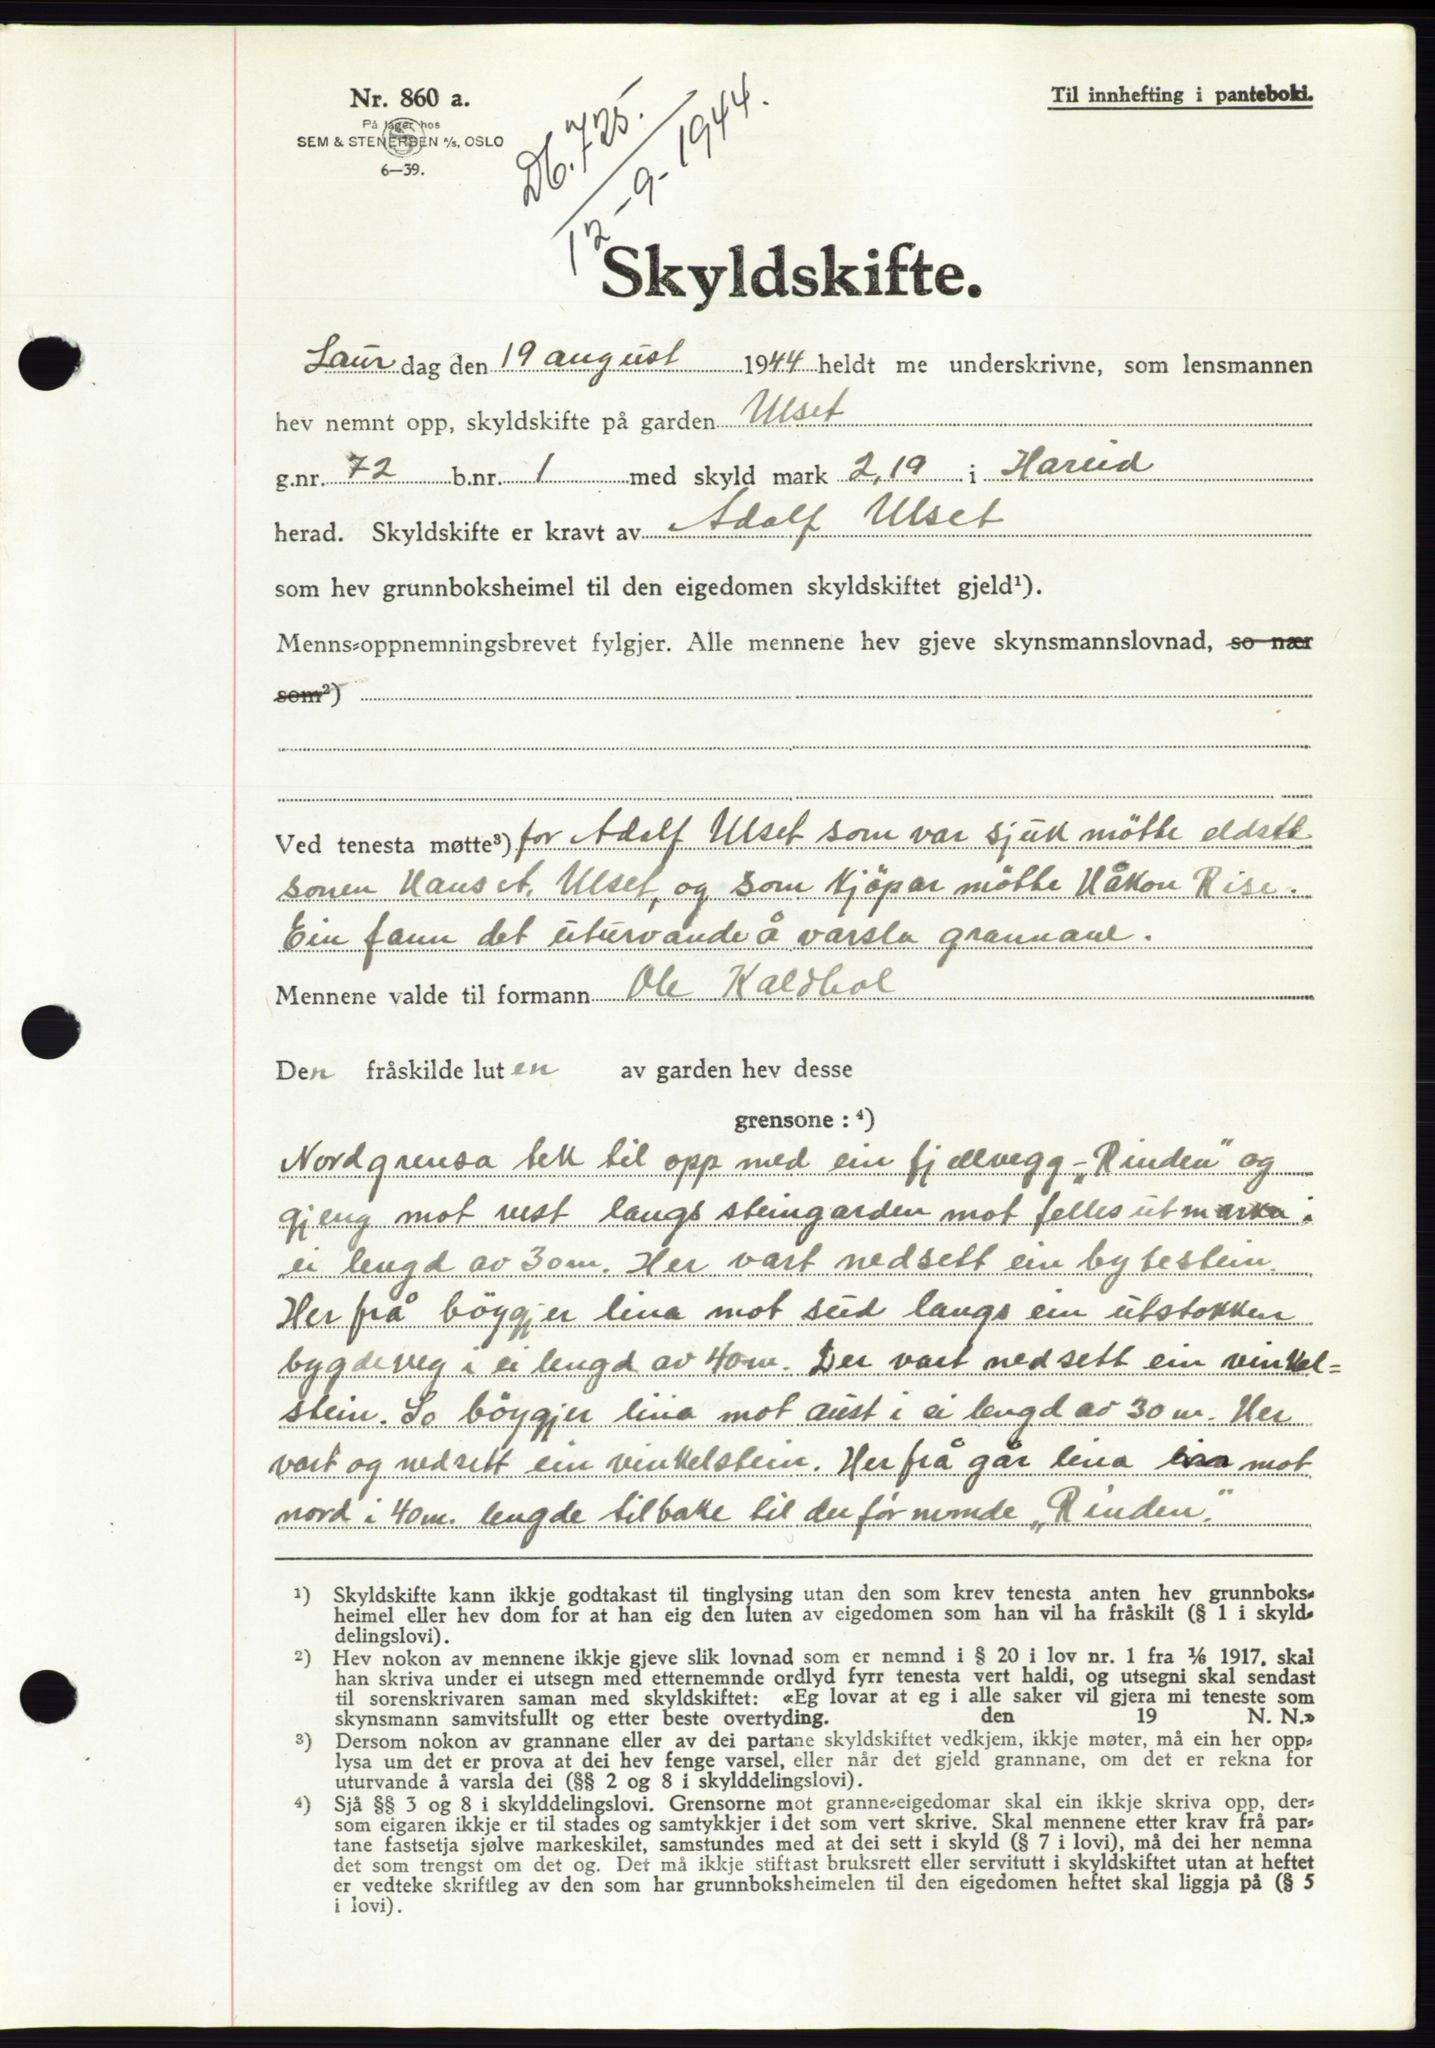 Nr. 860 a.
På lager hos
SEM & STENERSEN A/S, OSLO
6—39.
Db. 725.
12-9-1944.
Til innhefting i panteboki.
Skyldskifte.
Laurdag den 19 august 1944 heldt me underskrivne, som lensmannen
hev nemnt opp, skyldskifte på garden Ulset
g.nr. 72 b.nr. 1 med skyld mark 2,19 i Hareid
herad. Skyldskifte er kravt av Adolf Ulset
som hev grunnboksheimel til den eigedomen skyldskiftet gjeld¹).
Menns=oppnemningsbrevet fylgjer. Alle mennene hev gjeve skynsmannslovnad, so nær
som²)
Ved tenesta møtte³) for Adolf Ulset som var sjuk mötte eldste
sonen Hans A. Ulset, og som kjöpar mötte Håkon Rise.
Ein fann det uturvande å varsla grannane.
Mennene valde til formann Ole Kaldhol
Den fråskilde luten av garden hev desse
grensone : ⁴)
Nordgrensa tek til opp med ein fjellvegg - "Rinden" og
gjeng mot vest langs steingarden mot felles utmarka i
ei lengd av 30 m. Her vart nedsett ein bytestein.
Her frå böygjer lina mot sud langs ein utstokken
bygdeveg i ei lengd av 40 m. Der vart nedsett ein vinkel=
stein. So böygjer lina mot aust i ei lengd av 30 m. Her
vart og nedsett ein vinkelstein. Her frå går lina mot
nord i 40 m. lengde tilbake til den förnemnde „Rinden".
¹) Skyldskifte kann ikkje godtakast til tinglysing utan den som krev tenesta anten hev grunnboks=
heimel eller hev dom for at han eig den luten av eigedomen som han vil ha fråskilt (§ 1 i skyld=
delingslovi).
²) Hev nokon av mennene ikkje gjeve slik lovnad som er nemnd i § 20 i lov nr. 1 fra 1/6 1917, skal
han skriva under ei utsegn med etternemnde ordlyd fyrr tenesta vert haldi, og utsegni skal sendast
til sorenskrivaren saman med skyldskiftet: «Eg lovar at eg i alle saker vil gjera mi teneste som
skynsmann samvitsfullt og etter beste overtyding. den 19 N. N.»
³) Dersom nokon av grannane eller av dei partane skyldskiftet vedkjem, ikkje møter, må ein her opp=
lysa um det er prova at dei hev fenge varsel, eller når det gjeld grannane, om det er rekna for
uturvande å varsla dei (§§ 2 og 8 i skylddelingslovi).
⁴) Sjå §§ 3 og 8 i skylddelingslovi. Grensorne mot granne=eigedomar skal ein ikkje skriva opp, der=
som eigaren ikkje er til stades og samtykkjer i det som vert skrive. Skal mennene etter krav frå par=
tane fastsetja sjølve markeskilet, samstundes med at dei sett i skyld (§ 7 i lovi), må dei her nemna
det som trengst om det og. Det må ikkje stiftast bruksrett eller servitutt i skyldskiftet utan at heftet
er vedteke skriftleg av den som har grunnboksheimelen til den eigedomen heftet skal liggja på (§ 5
i lovi).